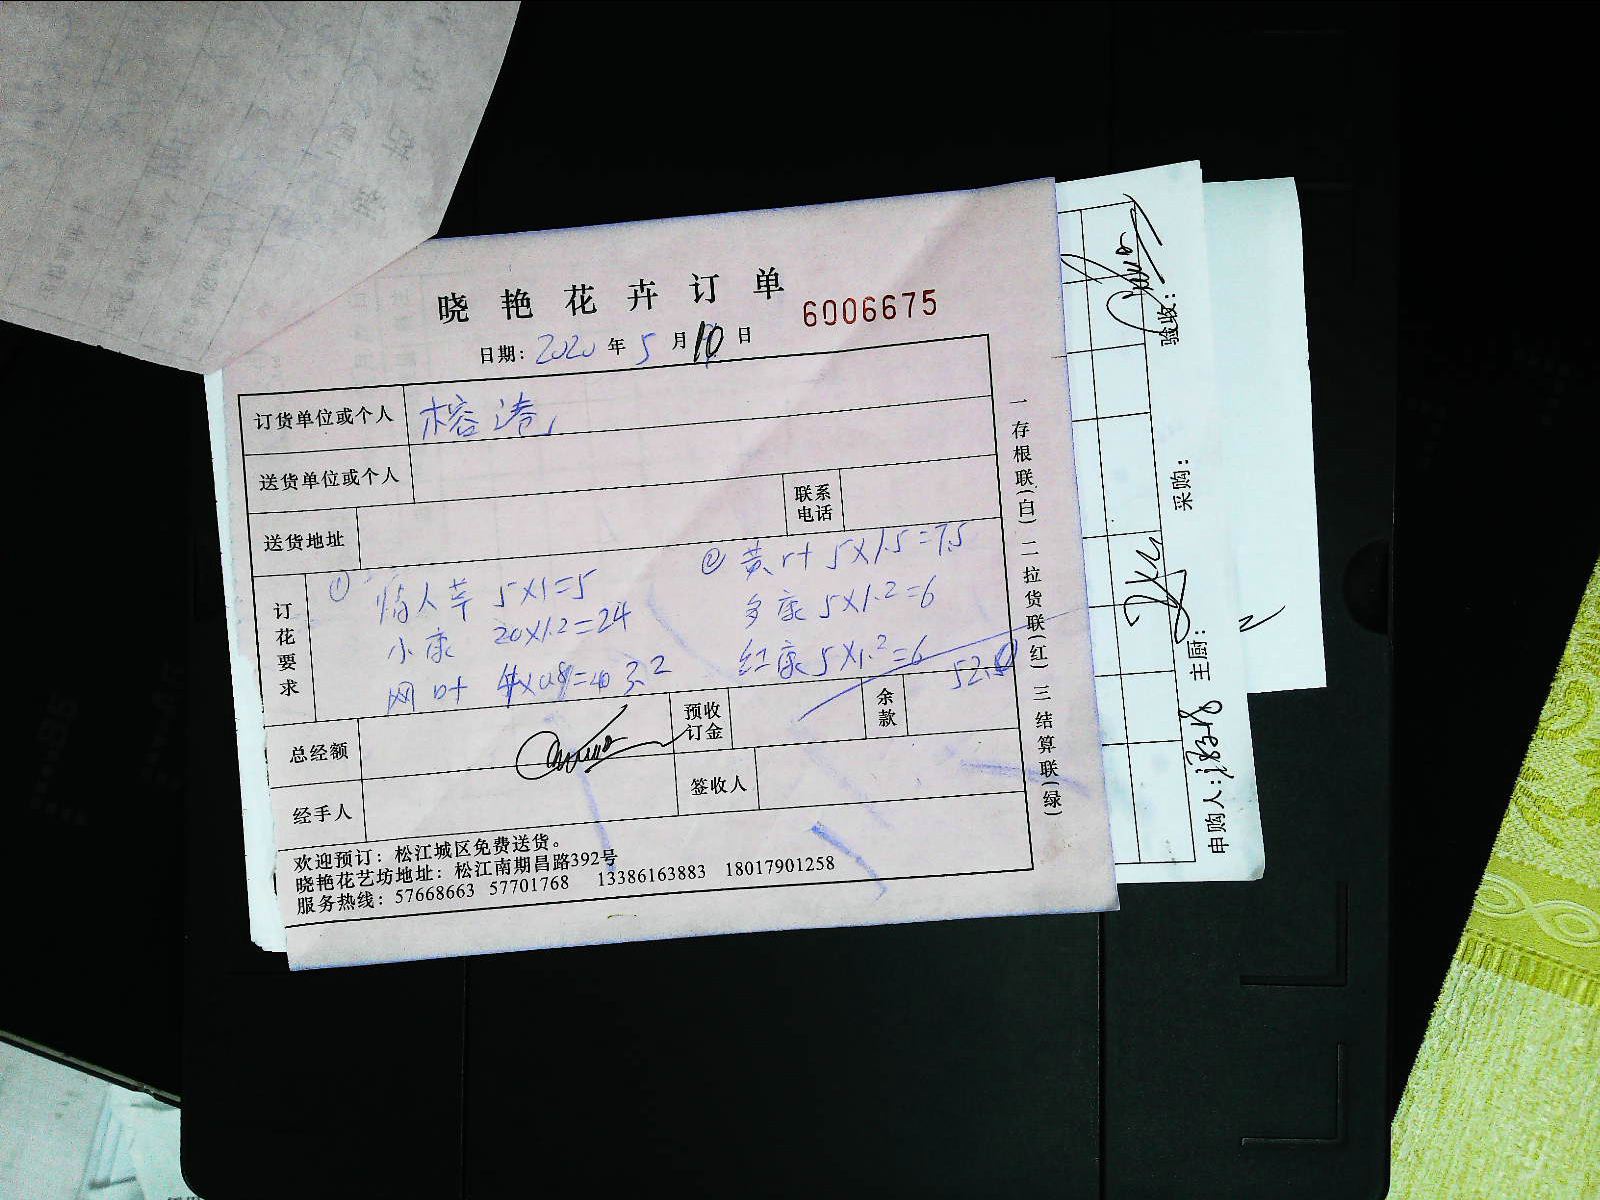 晓艳花卉订单
6006675
日期：2020年5月10日
订货单位或个人 榕港
送货单位或个人
送货地址 联系电话
订花要求
① 情人草 5×1=5
小康 20×1.2=24
网叶 4×0.8=3.2
② 黄叶 5×1.5=7.5
多康 5×1.2=6
红康 5×1.2=6
总经额 预收订金 余款
经手人 签收人
欢迎预订：松江城区免费送货。
晓艳花艺坊地址：松江南期昌路392号
服务热线：57668663 57701768 13386163883 18017901258
一存根联(白) 二拉货联(红) 三结算联(绿)
验收：
采购：
主厨：
申购人：